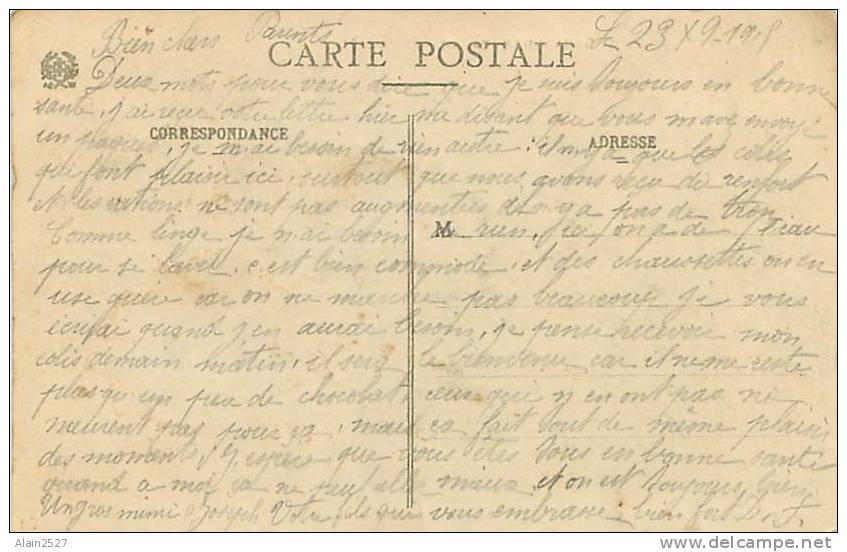 Le 23 X 9-1915
Bien chers Parents
CARTE POSTALE
Deux mots pour vous dire que je suis toujours en bonne
santé, j'ai reçu votre lettre hier me disant que vous m'avez envoyé
CORRESPONDANCE
ADRESSE
un paquet, je n'ai besoin de rien autre. il n'y a que les colis
qui font plaisir ici, surtout que nous avons reçu du renfort
et les rations ne sont pas augmentées il n'y a pas de trop
M
Comme linge je n'ai besoin de rien, ici on a de l'eau
pour se laver. c'est bien commode, et des chaussettes on en
use guère car on ne marche pas beaucoup je vous
écrirai quand j'en aurai besoin, je pense recevoir mon
colis demain matin, il sera le bienvenu car il ne me reste
plus qu'un peu de chocolat, ceux qui n'en ont pas ne
meurent pas pour ça, mais ça fait tout de même plaisir
des moments, j'espère que vous êtes tous en bonne santé
quand a moi ça ne peut aller mieux et on est toujours bien
Un gros mimi a Joseph Votre fils qui vous embrasse bien fort
Alain2527
delcampe.net